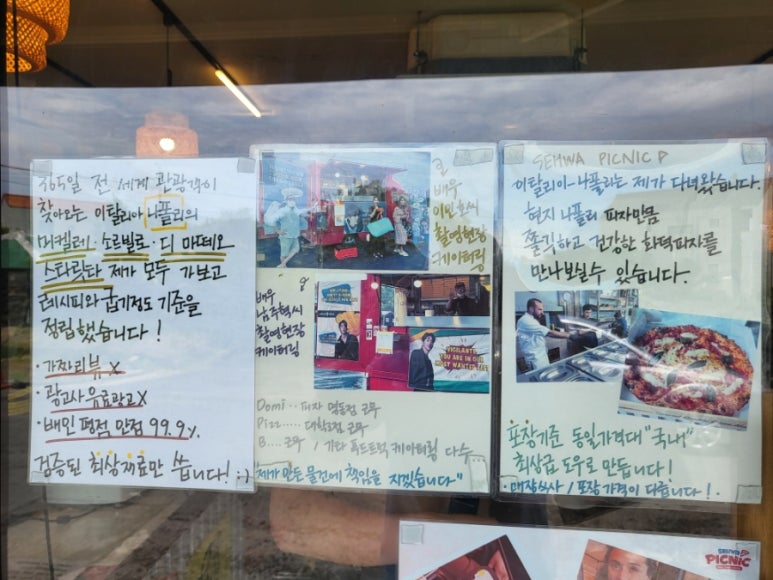 365일 전 세계 관광객이
찾아오는 이탈리아 나폴리의
미켈레· 소르빌로· 디 마떼오
스타릿따 제가 모두 가보고
레시피와 굽기정도 기준을
정립했습니다!
· 가짜리뷰 X
· 광고사 유료광고 X
· 배민 평점 만점 99.9%
검증된 최상재료만 씁니다! :)
배우
이민호씨
촬영현장
케이터링
배우
남주혁씨
촬영현장
케이터링
VIGILANTE
YOU ARE IN OUR
MOST WANTED
Domi... 피자 명동점 근무
Pizz..... 대학로점 근무
B.... 근무 / 기타 푸드트럭 케이터링 다수
제가 만든 물건에 책임을 지겠습니다"
SEHWA PICNIC
이탈리아-나폴리는 제가 다녀왔습니다.
현지 나폴리 피자만큼
쫄깃하고 건강한 화덕피자를
만나보실수 있습니다.
포장기준 동일가격대 "국내"
최상급 도우로 만듭니다!
· 매장식사 / 포장 가격이 다릅니다!
SEHWA
PICNIC